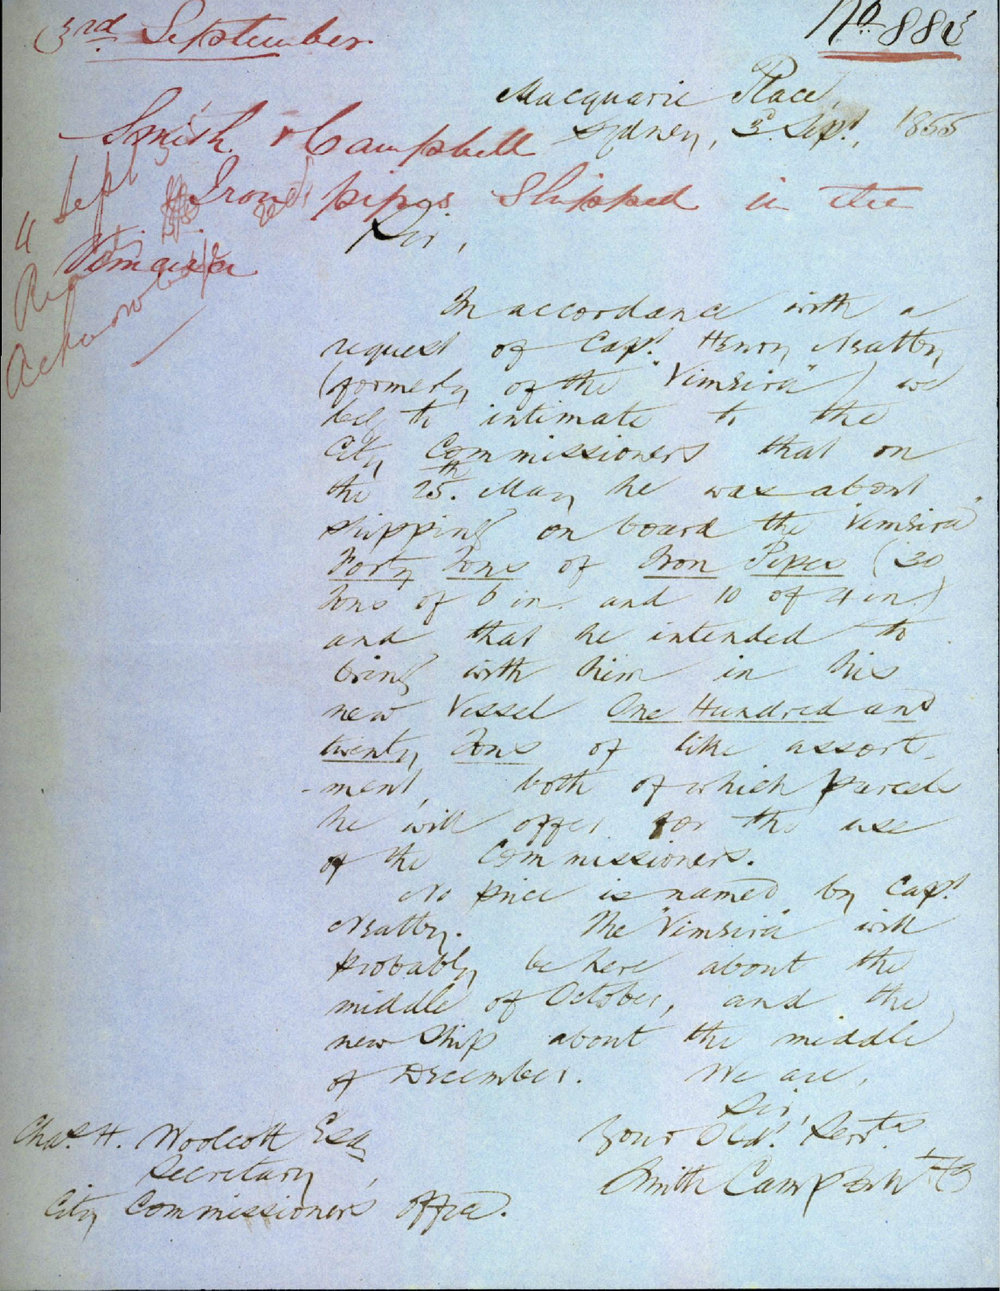 3rd September
No 883
Macquarie Place,
Sydney, 3d Sept., 1855
Smith & Campbell
Iron pipes Shipped in the
Vimeira
4 Sept
Acknowledge
Sir,
In accordance with a
request of Capt. Henry Neatby
(formerly of the "Vimeira") we
beg to intimate to the
City Commissioners that on
the 25th. May he was about
shipping on board the "Vimeira"
Forty Tons of Iron Pipes (30
Tons of 6 in. and 10 of 4 in.)
and that he intended to
bring with him in his
new Vessel One Hundred and
twenty Tons of like assort-
-ment, both of which parcels
he will offer for the use
of the Commissioners.
No price is named by Capt.
Neatby. The "Vimeira" will
probably be here about the
middle of October, and the
new Ship about the middle
of December. We are,
Sir,
Your Obdt. Servts.
Smith Campbell & Co
Chas. H. Woolcott Esq
Secretary,
City Commissioners Office.